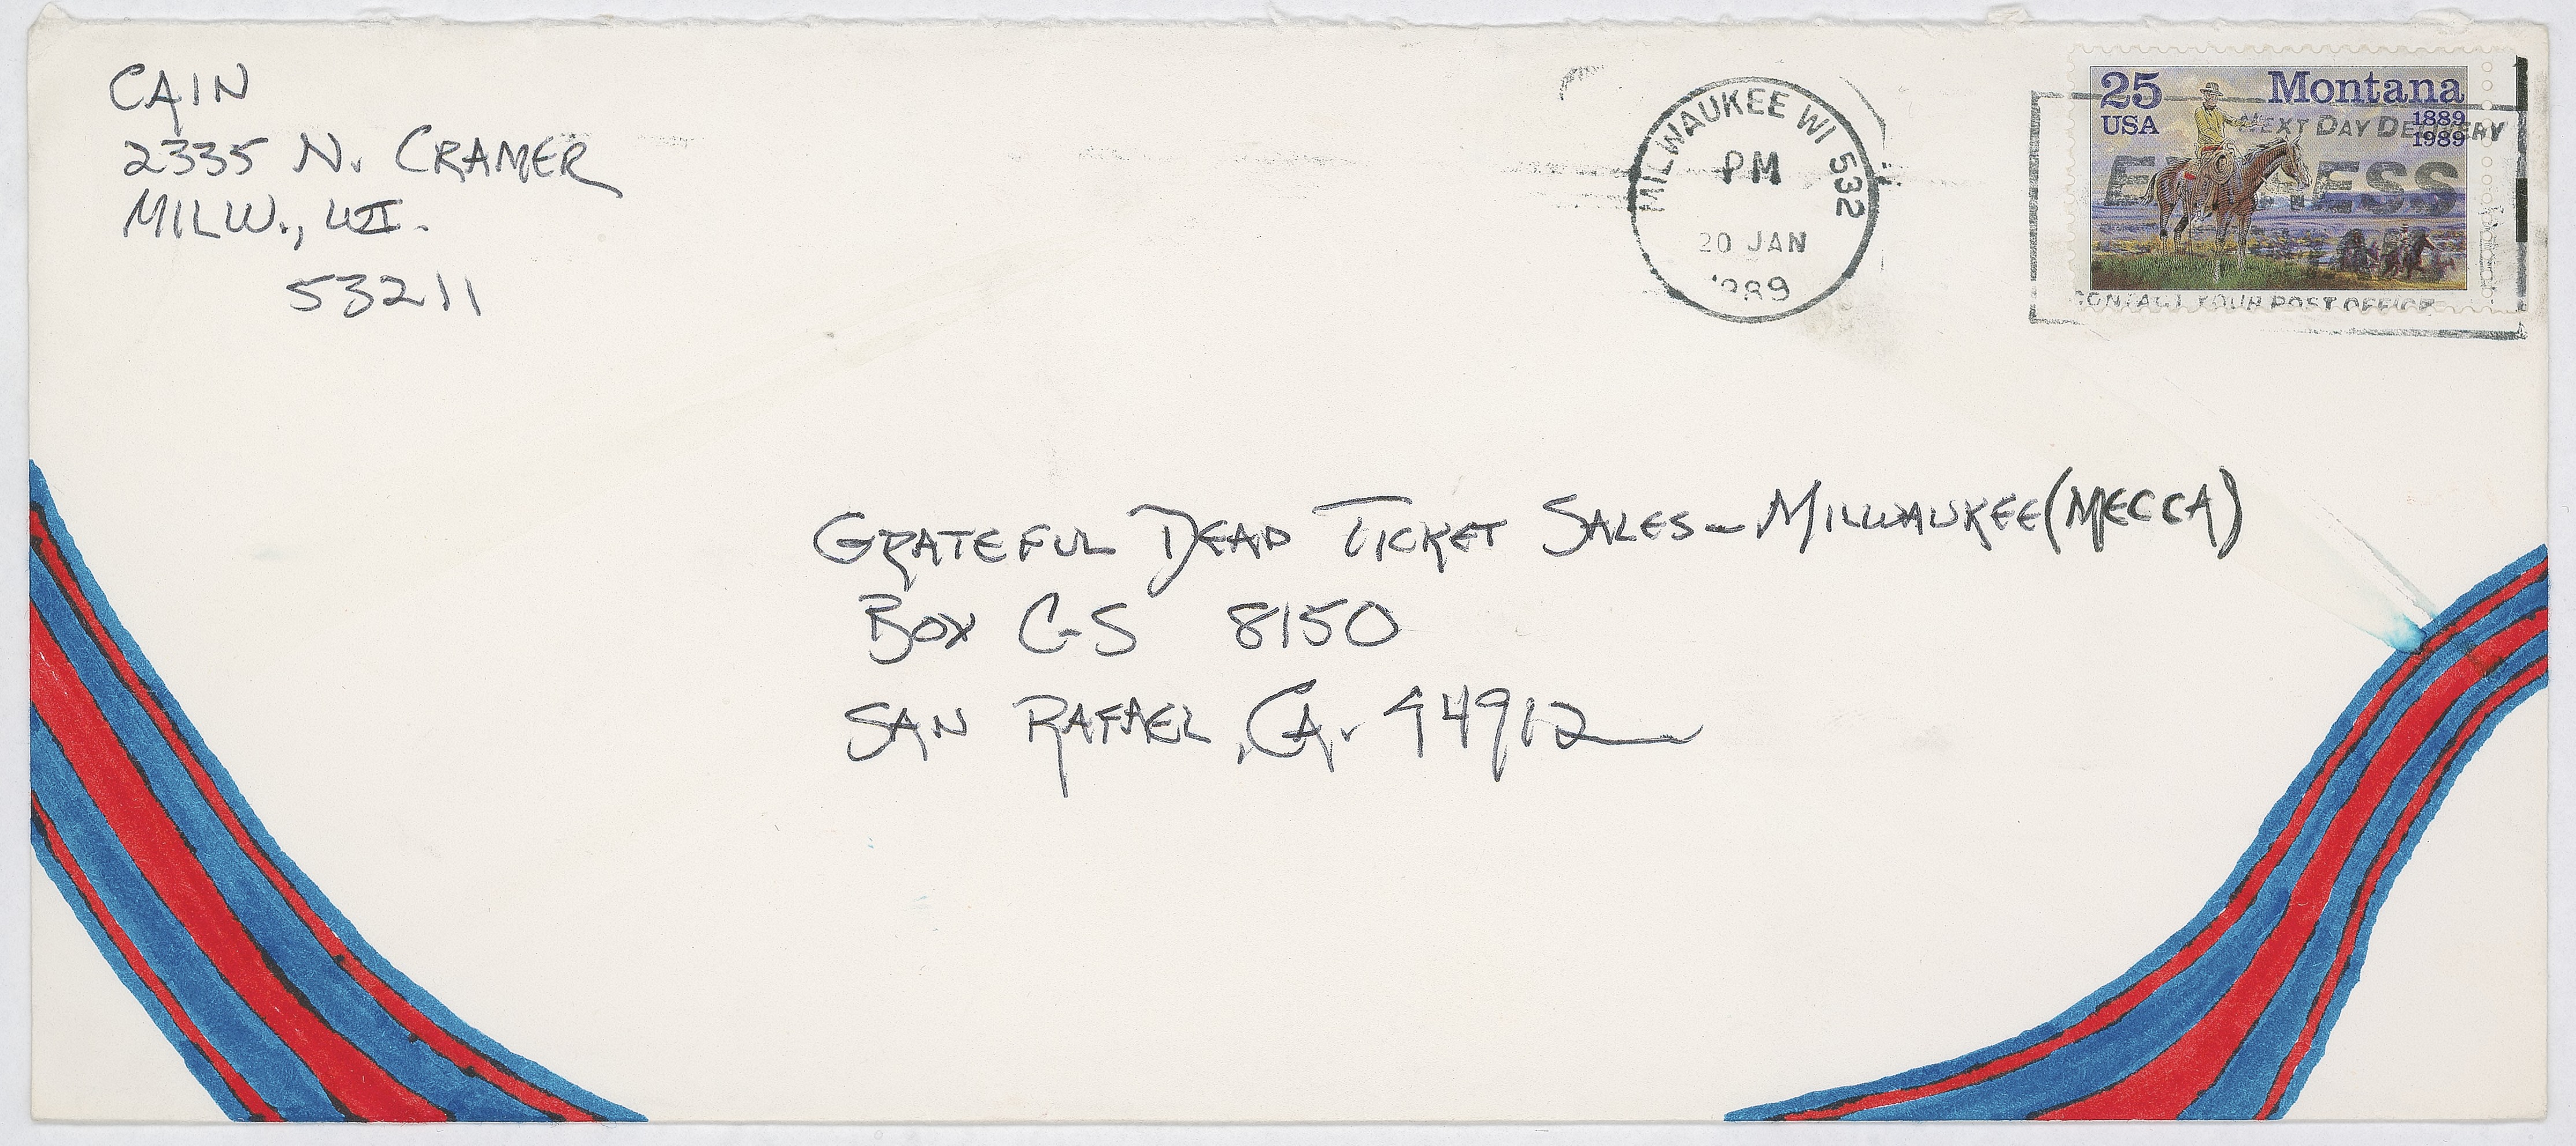 CAIN
2335 N. CRAMER
MILW., WI.
53211
MILWAUKEE WI 532
PM
20 JAN
1989
25
USA
Montana
1889
1989
NEXT DAY DELIVERY
EXPRESS
CONTACT YOUR POST OFFICE
GRATEFUL DEAD TICKET SALES - MILWAUKEE (MECCA)
BOX CS 8150
SAN RAFAEL, CA. 94912